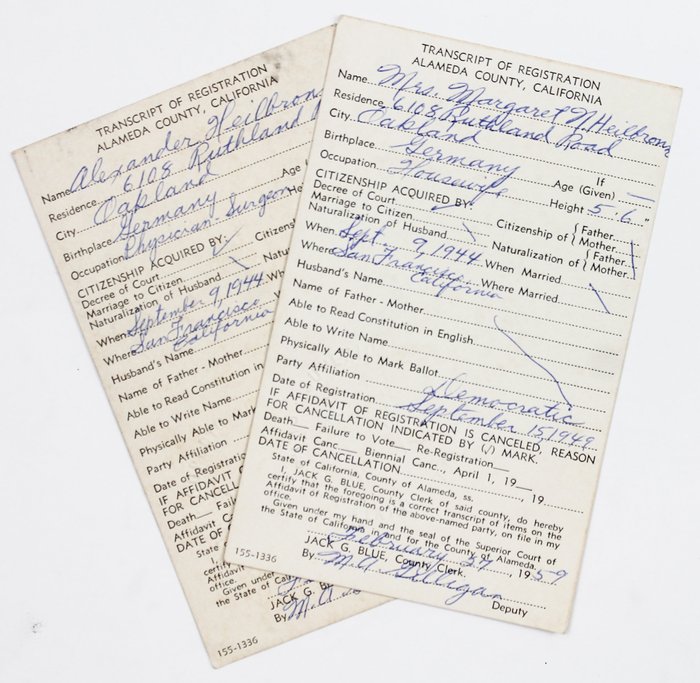 TRANSCRIPT OF REGISTRATION
ALAMEDA COUNTY, CALIFORNIA
Name Alexander Heilbronn
Residence 6108 Ruthland
City Oakland
Birthplace Germany
Occupation Physician Surgeon
CITIZENSHIP ACQUIRED BY:
Decree of Court ✓ Citizens
Marriage to Citizen
Naturalization of Husband
When September 9, 1944
Where San Francisco
California
Husband's Name
Name of Father - Mother
Able to Read Constitution in
Able to Write Name
Physically Able to Mark
Party Affiliation
Date of Registration
IF AFFIDAVIT OF
FOR CANCELLATION
Death Failure
Affidavit Canc
DATE OF CANCE
State of
certify
Affidavit
office.
Given under
the State of Cali
JACK G. BL
By M. A.
155-1336
TRANSCRIPT OF REGISTRATION
ALAMEDA COUNTY, CALIFORNIA
Name Mrs. Margaret N. Heilbronn
Residence 6108 Ruthland Road
City Oakland
Birthplace Germany If
Occupation Housewife Age (Given) —
CITIZENSHIP ACQUIRED BY: Height 5-6"
Decree of Court ✓ Citizenship of { Father
Marriage to Citizen { Mother
Naturalization of Husband Naturalization of { Father
{ Mother
When Sept. 9, 1944 When Married
Where San Francisco Where Married
California
Husband's Name
Name of Father - Mother
Able to Read Constitution in English
Able to Write Name
Physically Able to Mark Ballot
Party Affiliation Democratic
Date of Registration September 15, 1949
IF AFFIDAVIT OF REGISTRATION IS CANCELED, REASON
FOR CANCELLATION INDICATED BY (√) MARK.
Death Failure to Vote Re-Registration
Affidavit Canc. Biennial Canc., April 1, 19
DATE OF CANCELLATION , 19
State of California, County of Alameda, ss.
I, JACK G. BLUE, County Clerk of said county, do hereby
certify that the foregoing is a correct transcript of items on the
Affidavit of Registration of the above-named party, on file in my
office.
Given under my hand and the seal of the Superior Court of
the State of California in and for the County of Alameda.
February 27, 1959
JACK G. BLUE, County Clerk.
By M. A. Gilligan
Deputy
155-1336